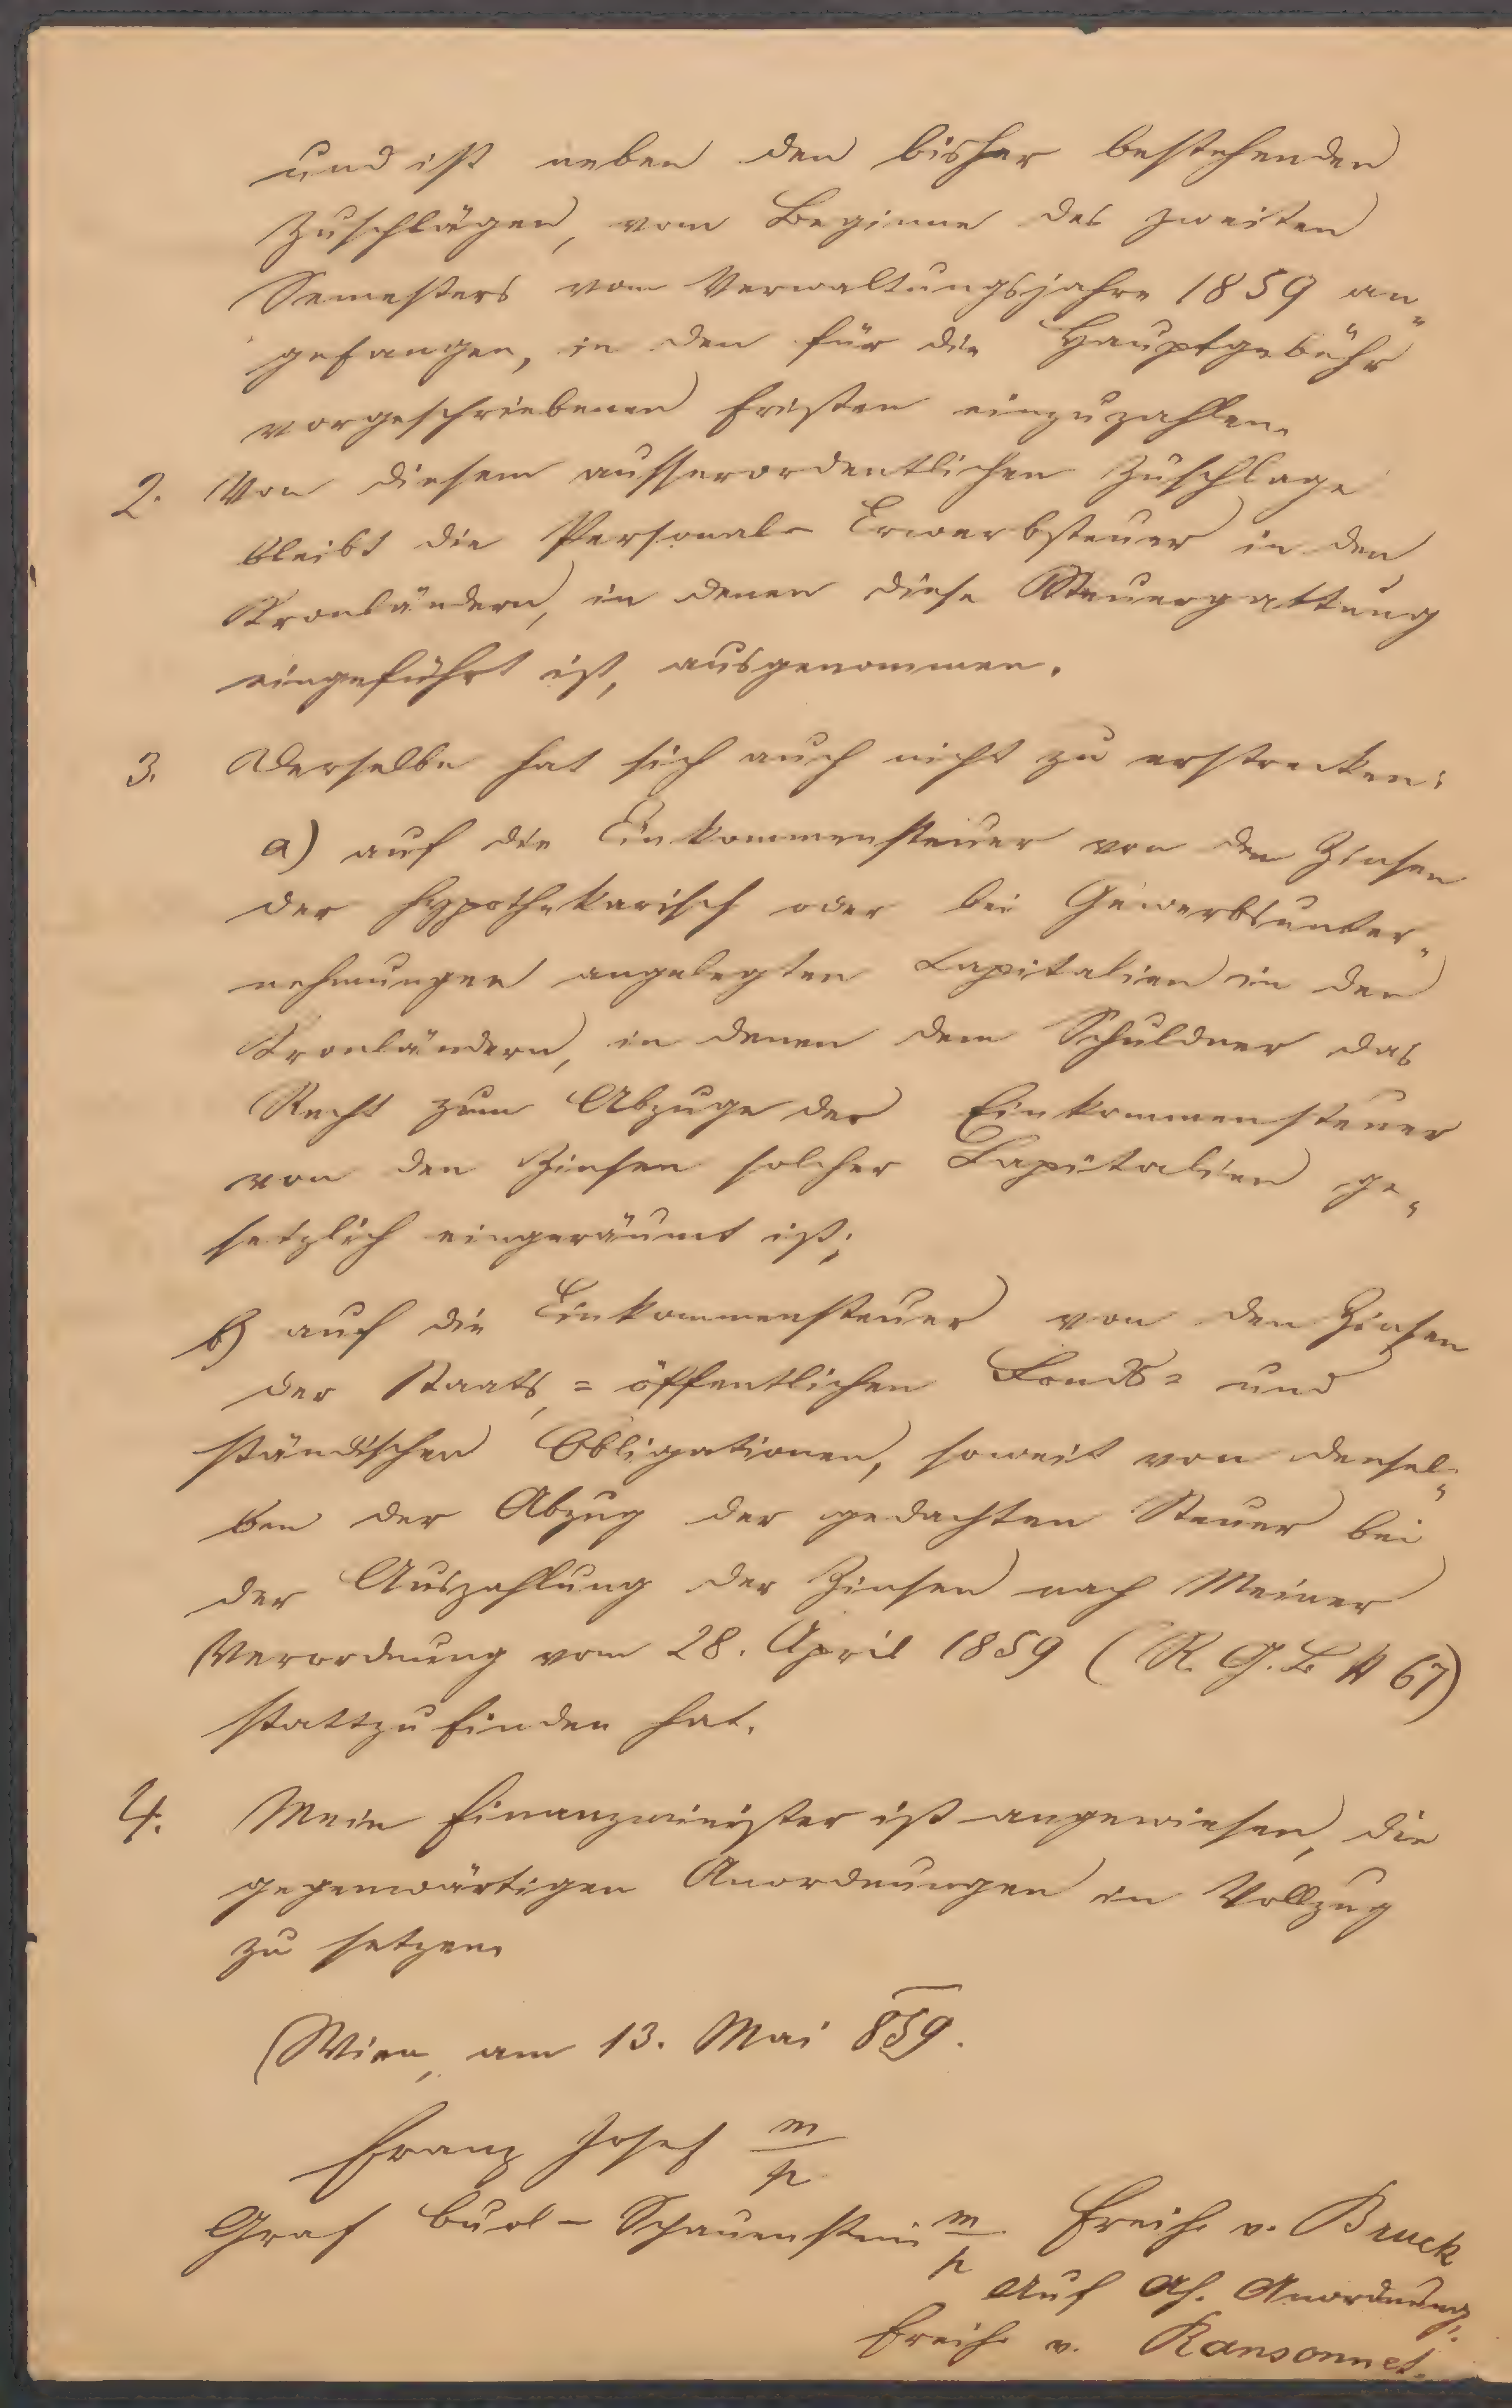 und ist neben den bisher bestehenden
Zuschlägen, vom Beginne des zweiten
Semesters vom Verwaltungsjahre 1859 an„
gefangen, in den für die Hauptgebühr
vorgeschriebenen Fristen einzuzahlen.
2. Von diesem ausserordentlichen Zuschlage
bleibt die Personal- Erwerbsteuer in den
Kronländern, in denen diese Steuergattung
eingeführt ist, ausgenommen.
3. Derselbe hat sich auch nicht zu erstrecken:
a) auf die Einkommensteuer von den Zinsen
der hypothekarisch oder bei Gewerbsunter„
nehmungen angelegten Capitalien in den
Kronländern, in denen dem Schuldner das
Recht zum Abzuge der Einkommensteuer
von den Zinsen solcher Capitalien ge„
setzlich eingeräumt ist;
b) auf die Einkommensteuer von den Zinsen
der Staats, = öffentlichen Fonds= und
ständischen Obligationen, soweit von densel„
ben der Abzug der gedachten Steuer bei
der Auszahlung der Zinsen nach Meiner
Verordnung vom 28. April 1859 (R. G. B. N 67)
stattzufinden hat.
4. Mein Finanzminister ist angewiesen, die
gegenwärtigen Anordnungen in Vollzug
zu setzen.
Wien, am 13. Mai 859.
Franz Josef m/p
Graf Buol - Schauenstein m/p Freih. v. Bruck
Auf Ah. Anordnung:
Freih. v. Ransonnet.